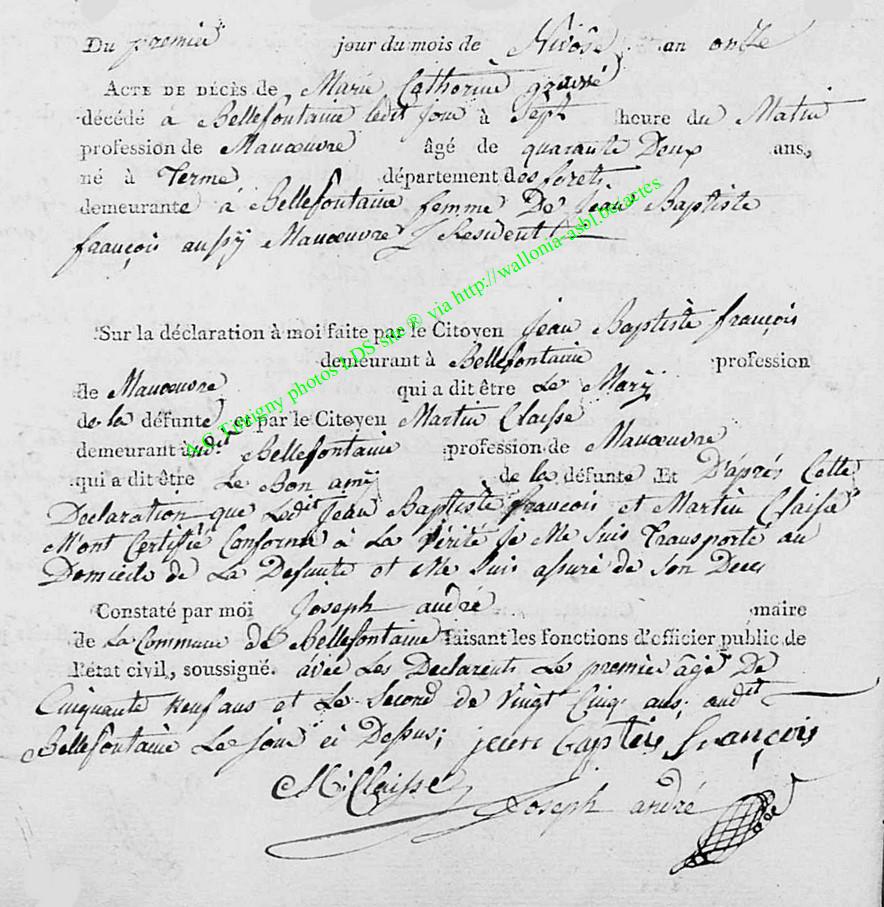 Du premier jour du mois de Nivôse an onze
ACTE DE DÉCÈS de Marie Catherine
décédé à Bellefontaine ledit jour à Sept heure du Matin
profession de Manoeuvre âgé de quarante Deux ans,
né à Terme département des forets
demeurante à Bellefontaine femme De Jean Baptiste
françois aussÿ Manoeuvre Y Resident
Sur la déclaration à moi faite par le Citoyen Jean Baptiste françois
demeurant à Bellefontaine profession
de Manoeuvre qui a dit être Le Marÿ
de la défunte, et par le Citoyen Martin Claisse
demeurant audit Bellefontaine profession de Manoeuvre
qui a dit être Le Bon amÿ de la défunte Et D'après Cette
Declaration que Ledit Jean Baptiste françois et Martin Claisse
M'ont Certifié Conforme à La Vérité Je Me Suis Transporté au
Domicile de La Defunte et Me Suis assuré de Son Deces
Constaté par moi Joseph andré maire
de La Commune de Bellefontaine faisant les fonctions d'officier public de
l'état civil, soussigné. avec Les Declarents Le premier âgé De
Cinquante neuf ans et Le Second de Vingt Cinq ans, audit
Bellefontaine Le Jour ci Dessus; jean baptis françois
M: Claisse
Joseph andré
photos LDS site ® via http://wallonia-asbl.be/actes